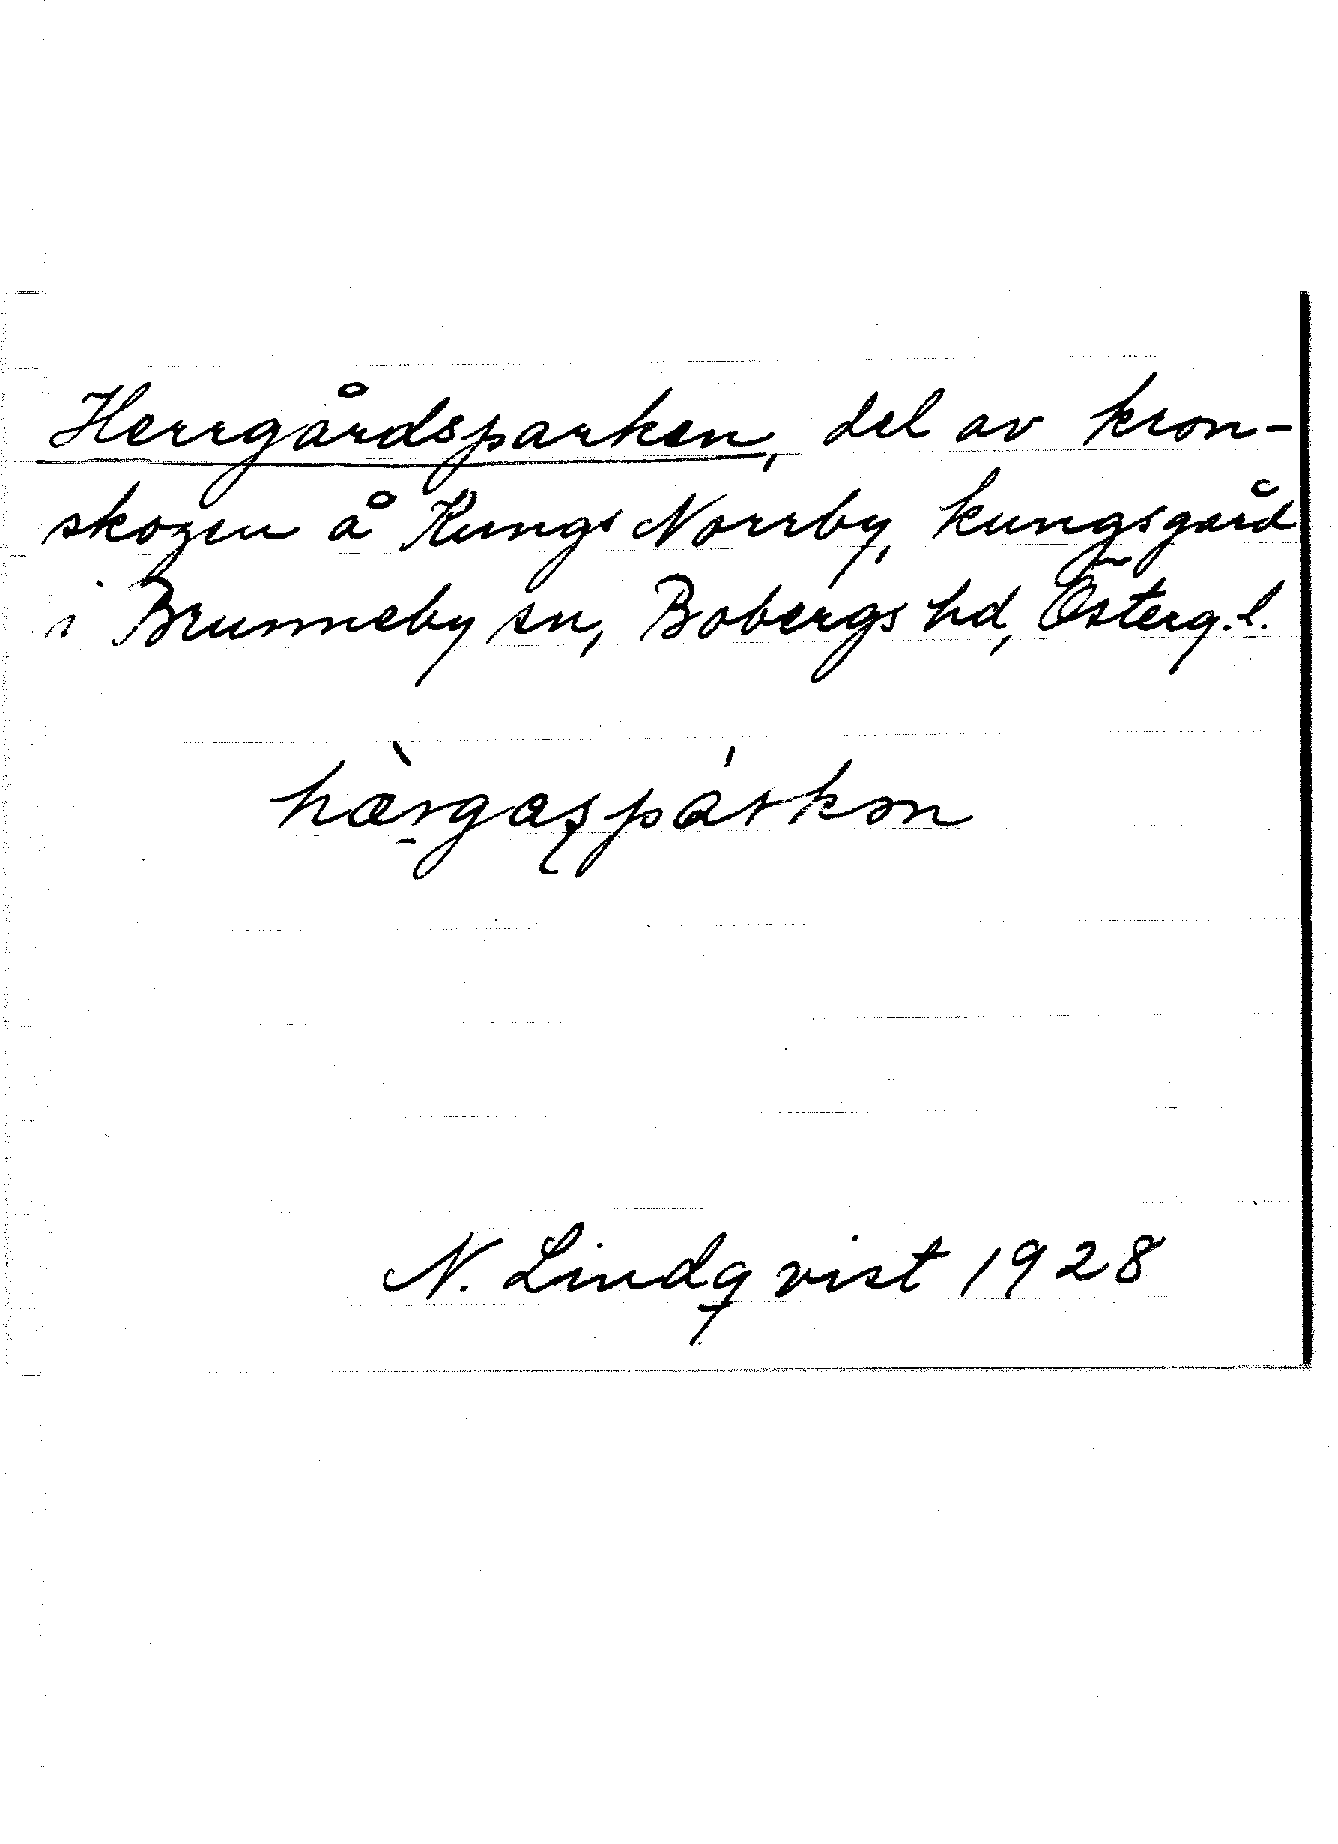 Herrgårdsparken, del av kron-
skogen å Kungs Norrby, kungsgård
i Brunneby sn, Bobergs hd, Österg. l.
hæ̀rgaspárkən
N. Lindqvist 1928